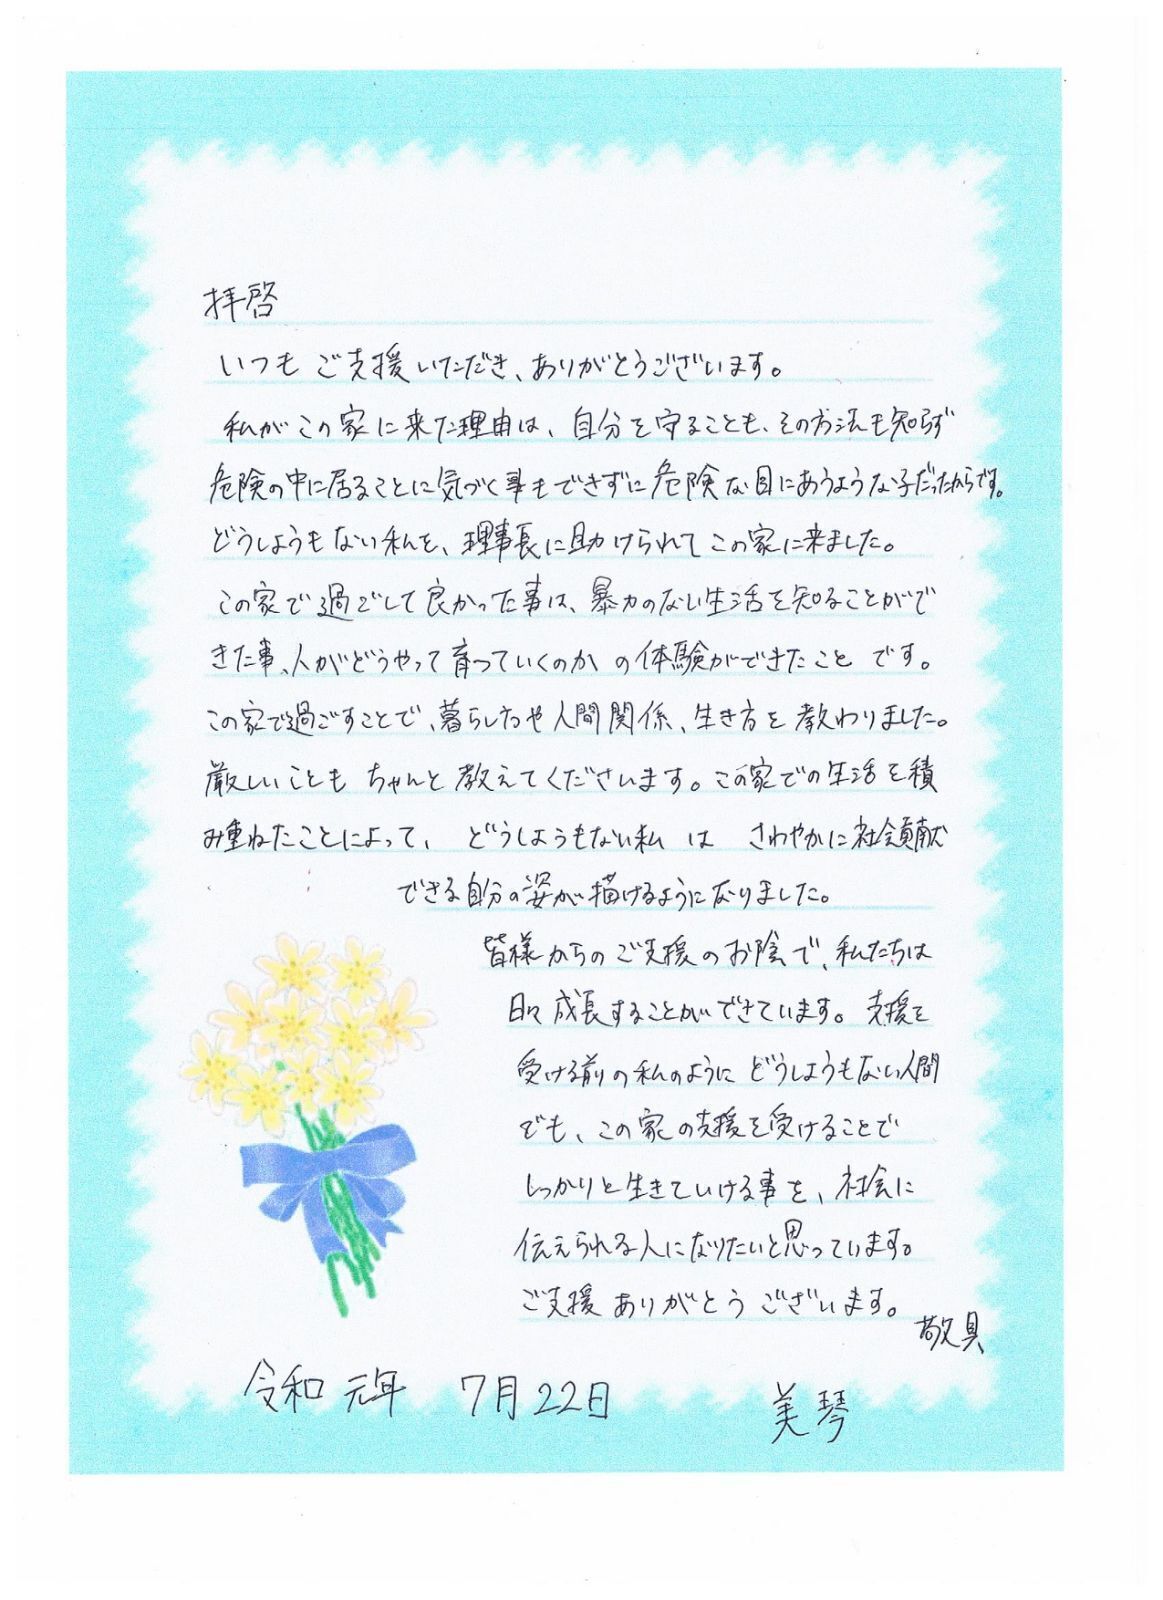 拝啓
いつもご支援いただき、ありがとうございます。
私がこの家に来た理由は、自分を守ることも、その方法も知らず
危険の中に居ることに気づく事もできずに危険な目にあうような子だったからです。
どうしようもない私を、理事長に助けられてこの家に来ました。
この家で過ごして良かった事は、暴力のない生活を知ることがで
きた事、人がどうやって育っていくのかの体験ができたことです。
この家で過ごすことで、暮らし方や人間関係、生き方を教わりました。
厳しいこともちゃんと教えてくださいます。この家での生活を積
み重ねたことによって、どうしようもない私は さわやかに社会貢献
できる自分の姿が描けるようになりました。
皆様からのご支援のお陰で、私たちは
日々成長することができています。支援を
受ける前の私のようにどうしようもない人間
でも、この家の支援を受けることで
しっかりと生きていける事を、社会に
伝えられる人になりたいと思っています。
ご支援ありがとうございます。
敬具
令和元年 7月22日 美琴